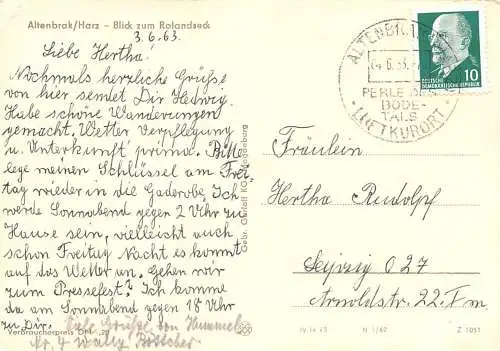 Altenbrak/Harz - Blick zum Rolandseck
3.6.63.
Liebe Hertha!
Nochmals herzliche Grüße
von hier sendet Dir Hedwig.
Habe schöne Wanderungen
gemacht, Wetter Verpflegung
u. Unterkunft prima. Bitte
lege meinen Schlüssel am Frei-
tag wieder in die Gaderobe. Ich
werde Sonnabend gegen 2 Uhr zu
Hause sein, vielleicht auch
schon Freitag Nacht es kommt
auf das Wetter an. Gehen wir
zum Pressefest? Ich komme
da am Sonnabend gegen 18 Uhr
zu Dir. Liebe Grüße von
Nr. 4
Verbraucherpreis
Gebr. KG, Magdeburg
ALTENBRAK
PERLE DES
BODE-
TALS
· LUFTKURORT ·
10
DEUTSCHE
DEMOKRATISCHE REPUBLIK
Fräulein
Hertha Rudolpf
Leipzig O 27
Arnoldstr. 22 F. m.
IV 14 45 N 1/62 Z 1051